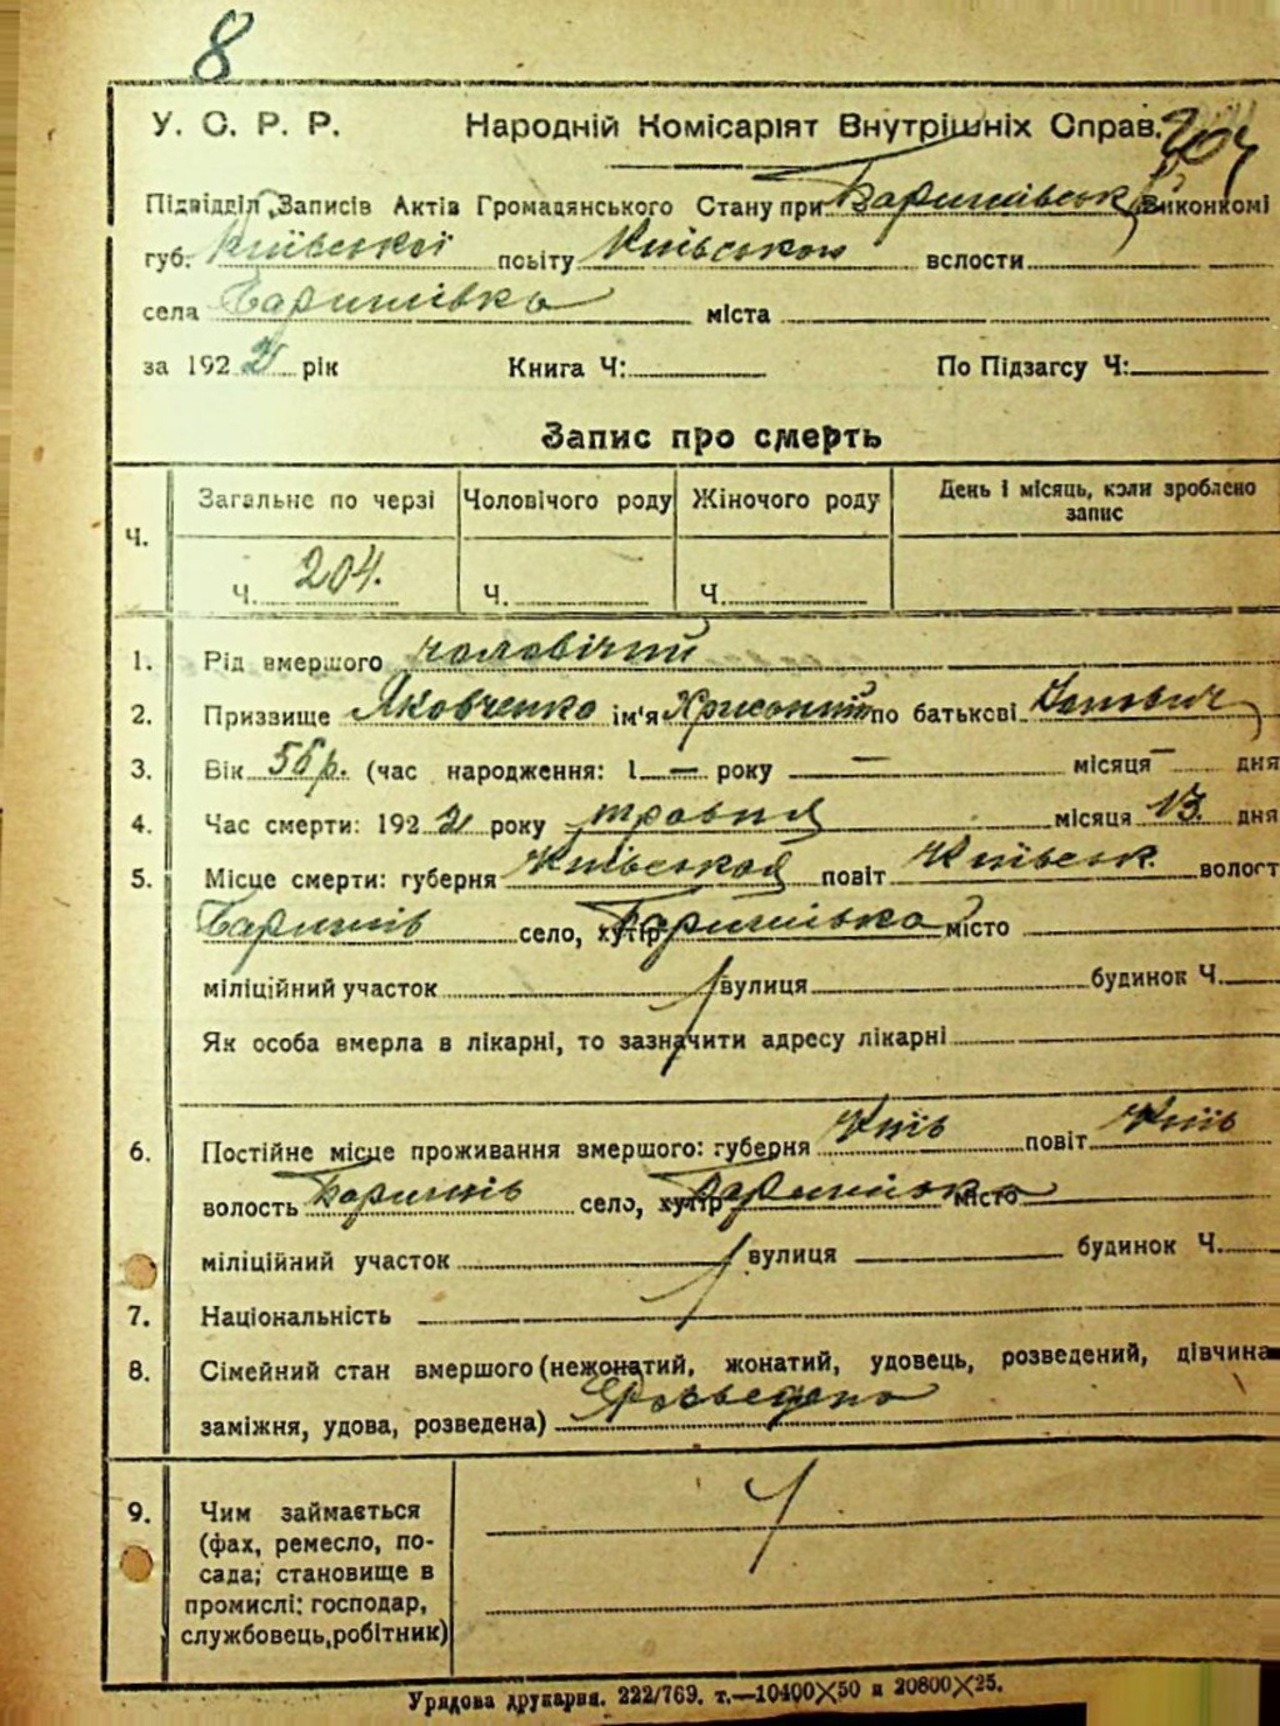 8
У. С. Р. Р. Народній Комісаріят Внутрішніх Справ. 204
Підвідділ Записів Актів Громадянського Стану при Баришівськ Виконкомі
губ. Київської повіту Київською волости
села Баришівка міста
за 1922 рік Книга Ч: По Підзагсу Ч:
Запис про смерть
Ч. Загальне по черзі Чоловічого роду Жіночого роду День і місяць, коли зроблено
запис
Ч. 204. Ч. Ч.
1. Рід вмершого чоловічий
2. Призвище Яковченко ім'я по батькові
3. Вік 56 р. (час народження: 1 — року — місяця — дня
4. Час смерти: 1922 року травня місяця 13. дня
5. Місце смерти: губерня Київської повіт Київськ. волост
Баришів село, хутір Баришівка місто
міліційний участок вулиця будинок Ч.
Як особа вмерла в лікарні, то зазначити адресу лікарні
6. Постійне місце проживання вмершого: губерня Київ повіт Київ
волость Баришів село, хутір Баришівка місто
міліційний участок вулиця будинок Ч.
7. Національність
8. Сімейний стан вмершого (нежонатий, жонатий, удовець, розведений, дівчина
заміжня, удова, розведена) Розведено
9. Чим займається
(фах, ремесло, по-
сада; становище в
промислі: господар,
службовець, робітник)
Урядова друкарня. 222/769. т.—10400X50 и 20800X25.